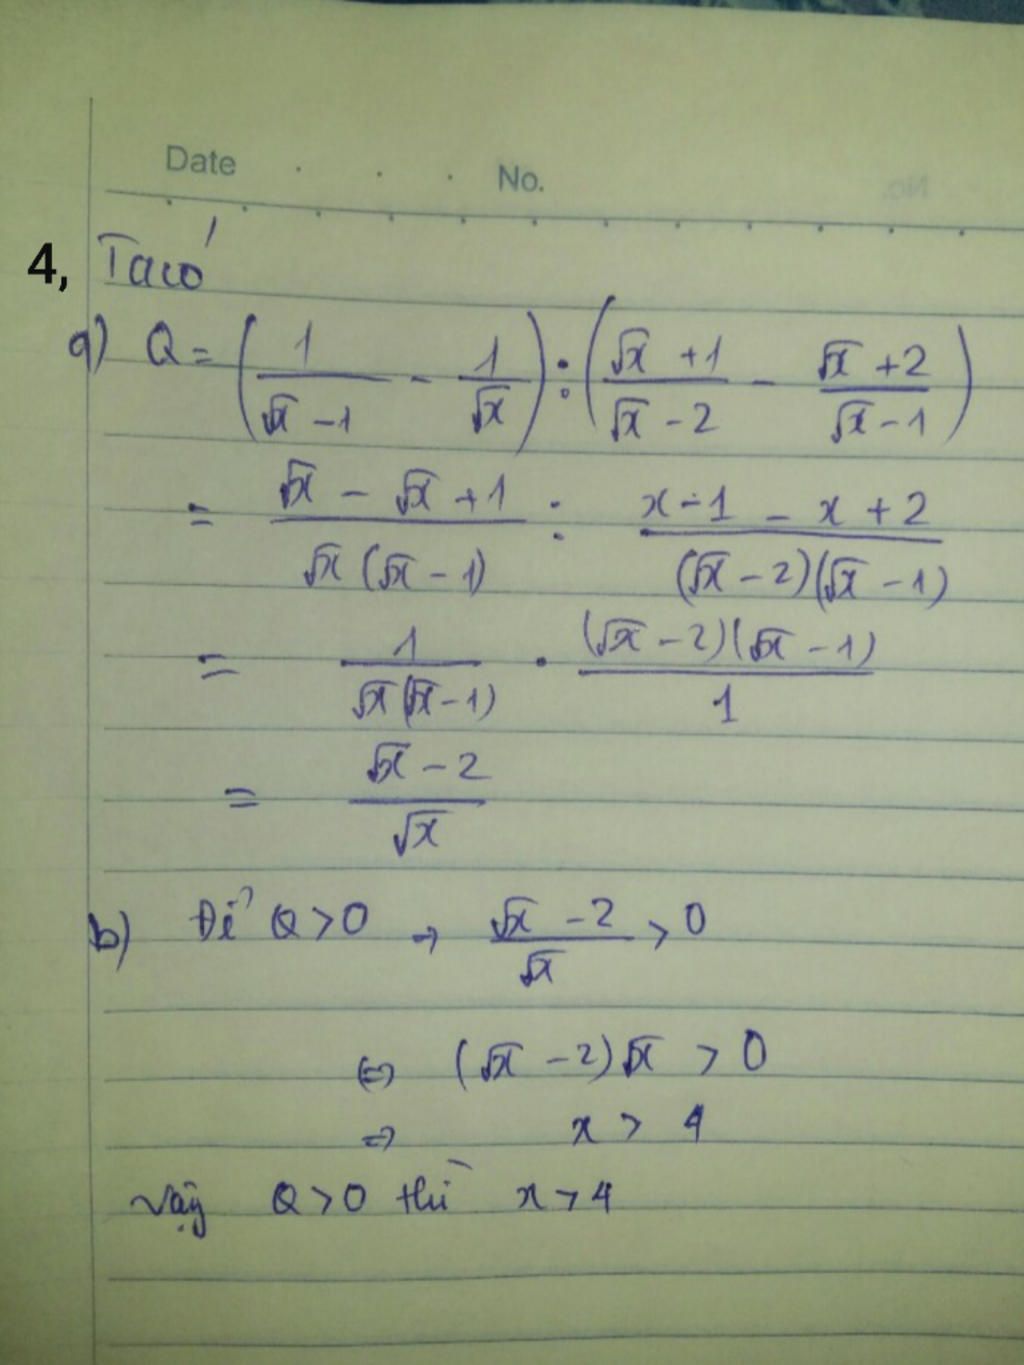 Date . . . No.
4, Ta có
a) Q = (1/(√x - 1) - 1/√x) : ((√x + 1)/(√x - 2) - (√x + 2)/(√x - 1))
= (√x - √x + 1)/(√x(√x - 1)) : (x - 1 - x + 2)/((√x - 2)(√x - 1))
= 1/(√x(√x - 1)) · ((√x - 2)(√x - 1))/1
= (√x - 2)/√x
b) Để Q > 0 → (√x - 2)/√x > 0
⇔ (√x - 2)√x > 0
⇒ x > 4
Vậy Q > 0 thì x > 4